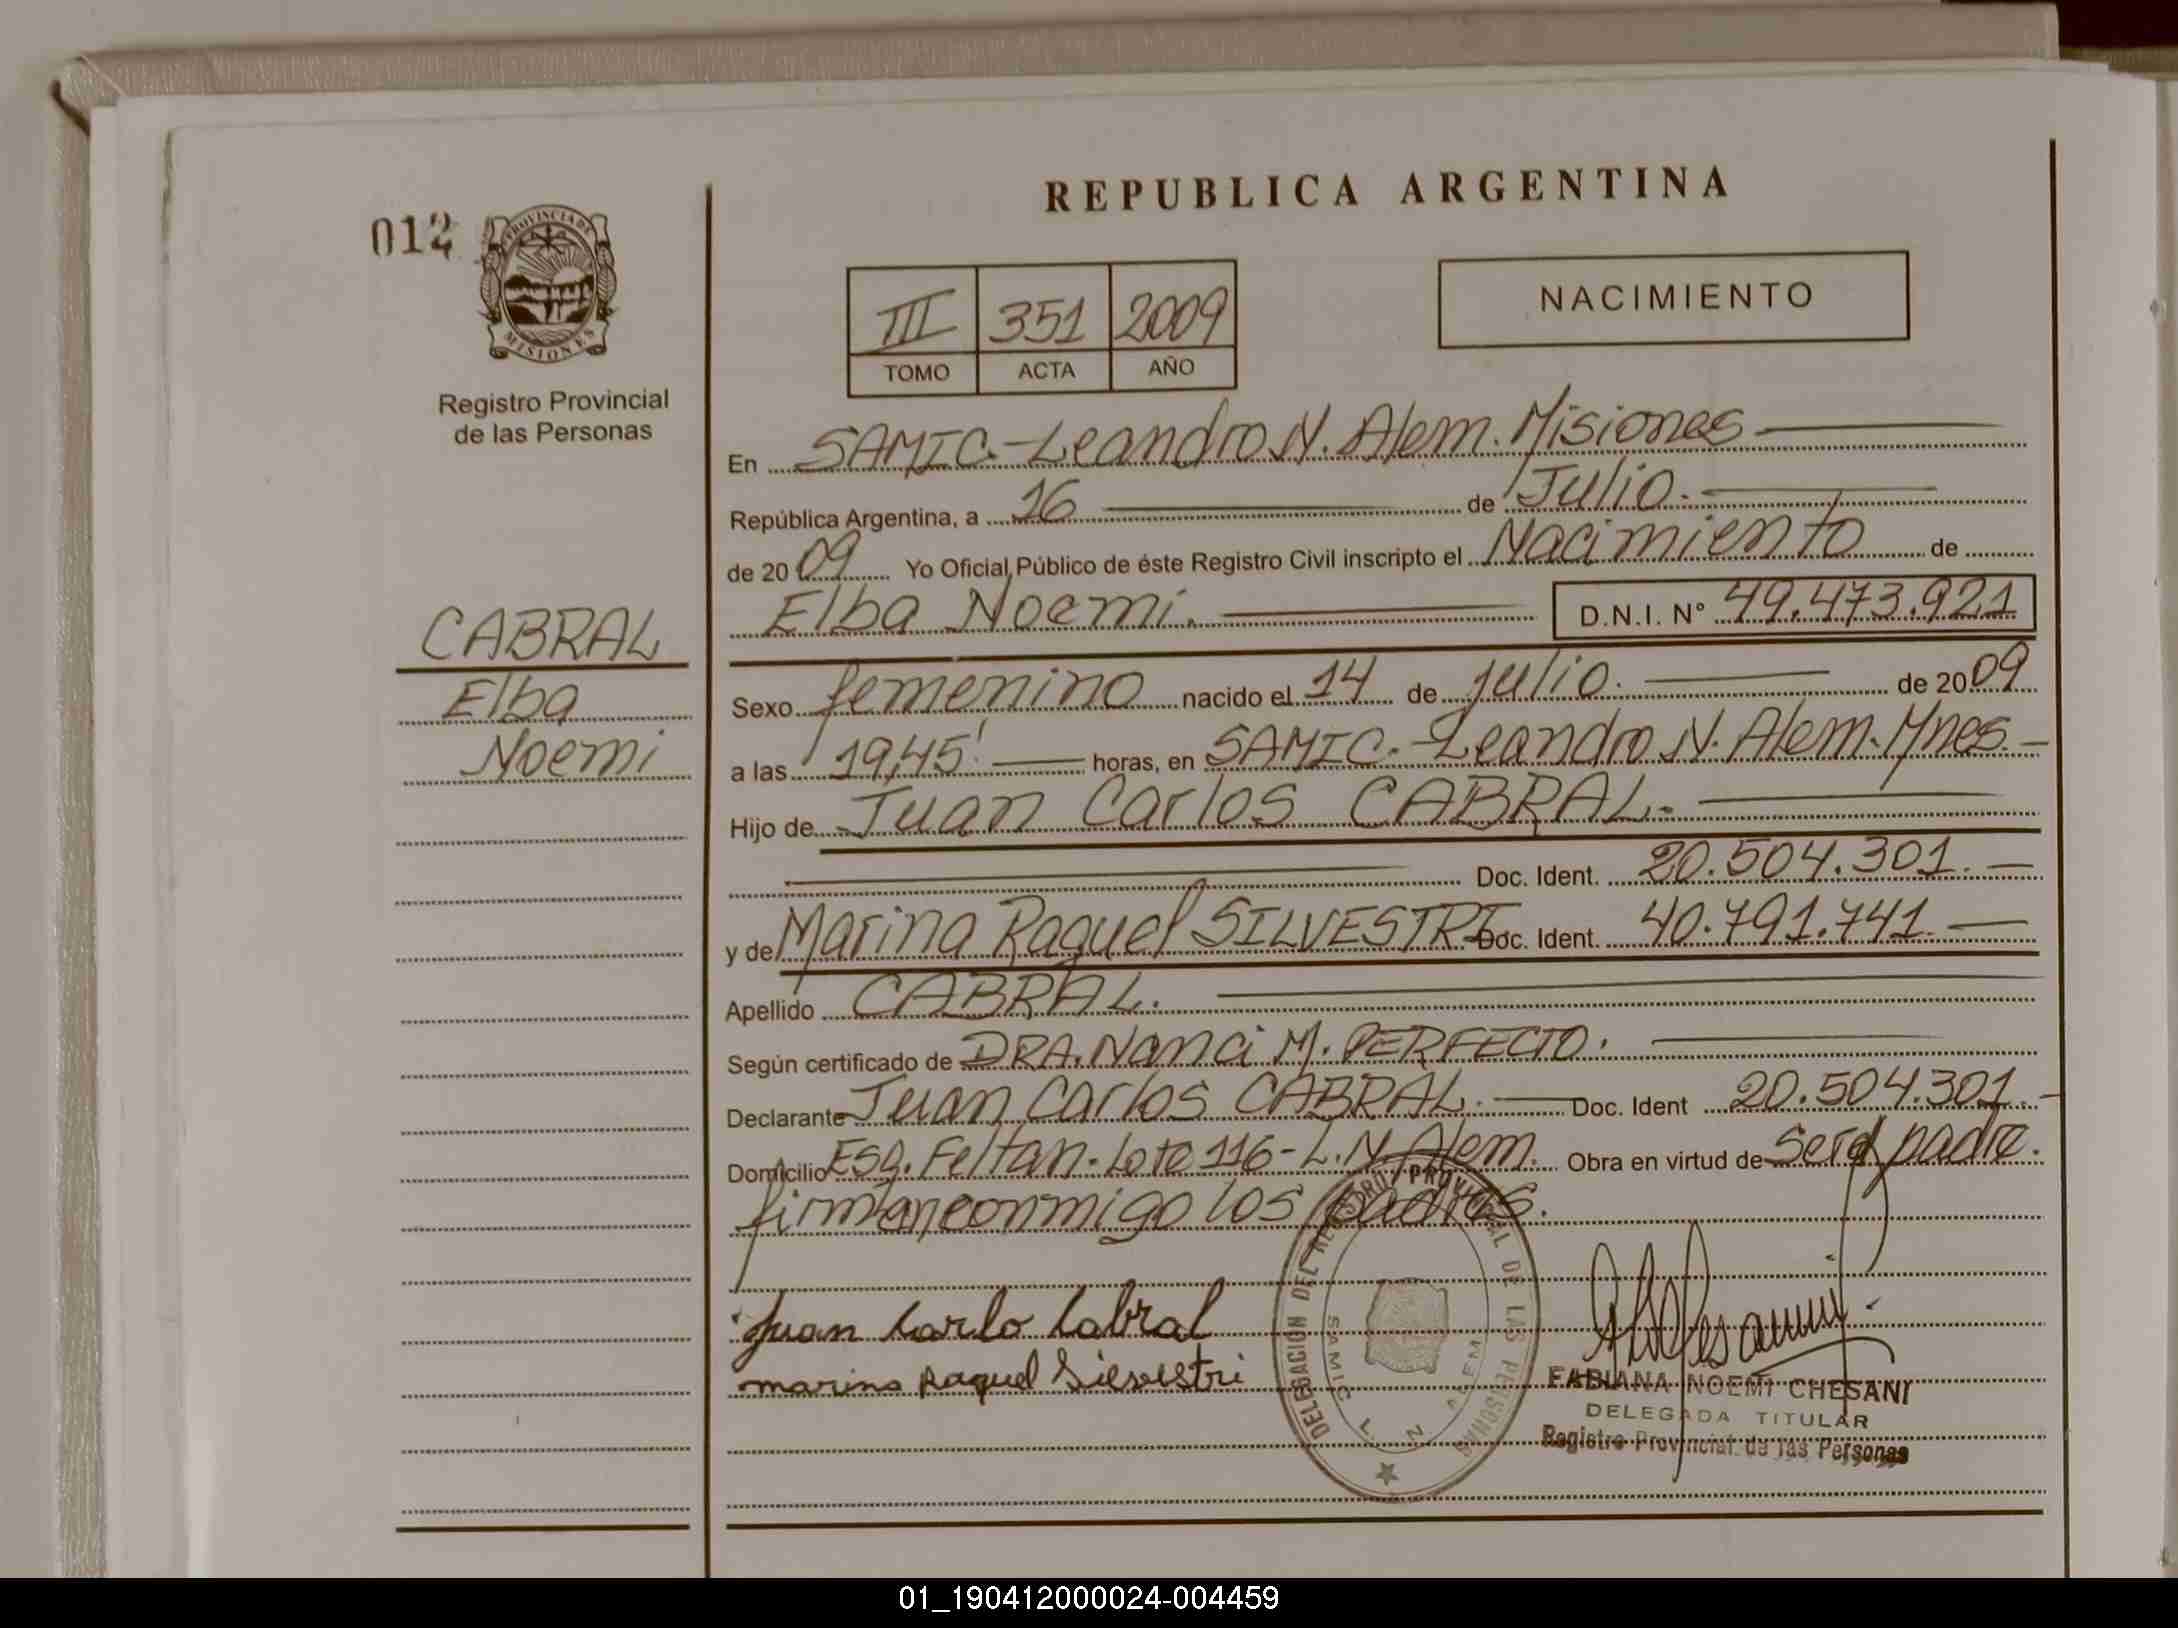 REPUBLICA ARGENTINA
012
PROVINCIA DE
MISIONES
Registro Provincial
de las Personas
III 351 2009
TOMO ACTA AÑO
NACIMIENTO
CABRAL
Elba
Noemi
En SAMIC.-Leandro N. Alem. Misiones
República Argentina, a 16 de Julio.
de 2009 Yo Oficial Público de éste Registro Civil inscripto el Nacimiento de
Elba Noemi. D.N.I. Nº 49.473.921
Sexo femenino nacido el 14 de julio. de 2009
a las 19,45' horas, en SAMIC.-Leandro N. Alem. Mnes.
Hijo de Juan Carlos CABRAL.
Doc. Ident. 20.504.301.
y de Marina Raquel SILVESTRI Doc. Ident. 40.791.741.
Apellido CABRAL.
Según certificado de DRA. Nanci M. PERFECTO.
Declarante Juan Carlos CABRAL. Doc. Ident 20.504.301.
Domicilio Esq. Feltan. Lote 116- L.N. Alem. Obra en virtud de ser el padre.
firman conmigo los padres.
Juan Carlo Cabral
marina Raquel Silvestri
DELEGACION DEL REGISTRO PROVINCIAL DE LAS PERSONAS
SAMIC L. N. ALEM
FABIANA NOEMI CHESANI
DELEGADA TITULAR
Registro Provincial de las Personas
01_190412000024-004459